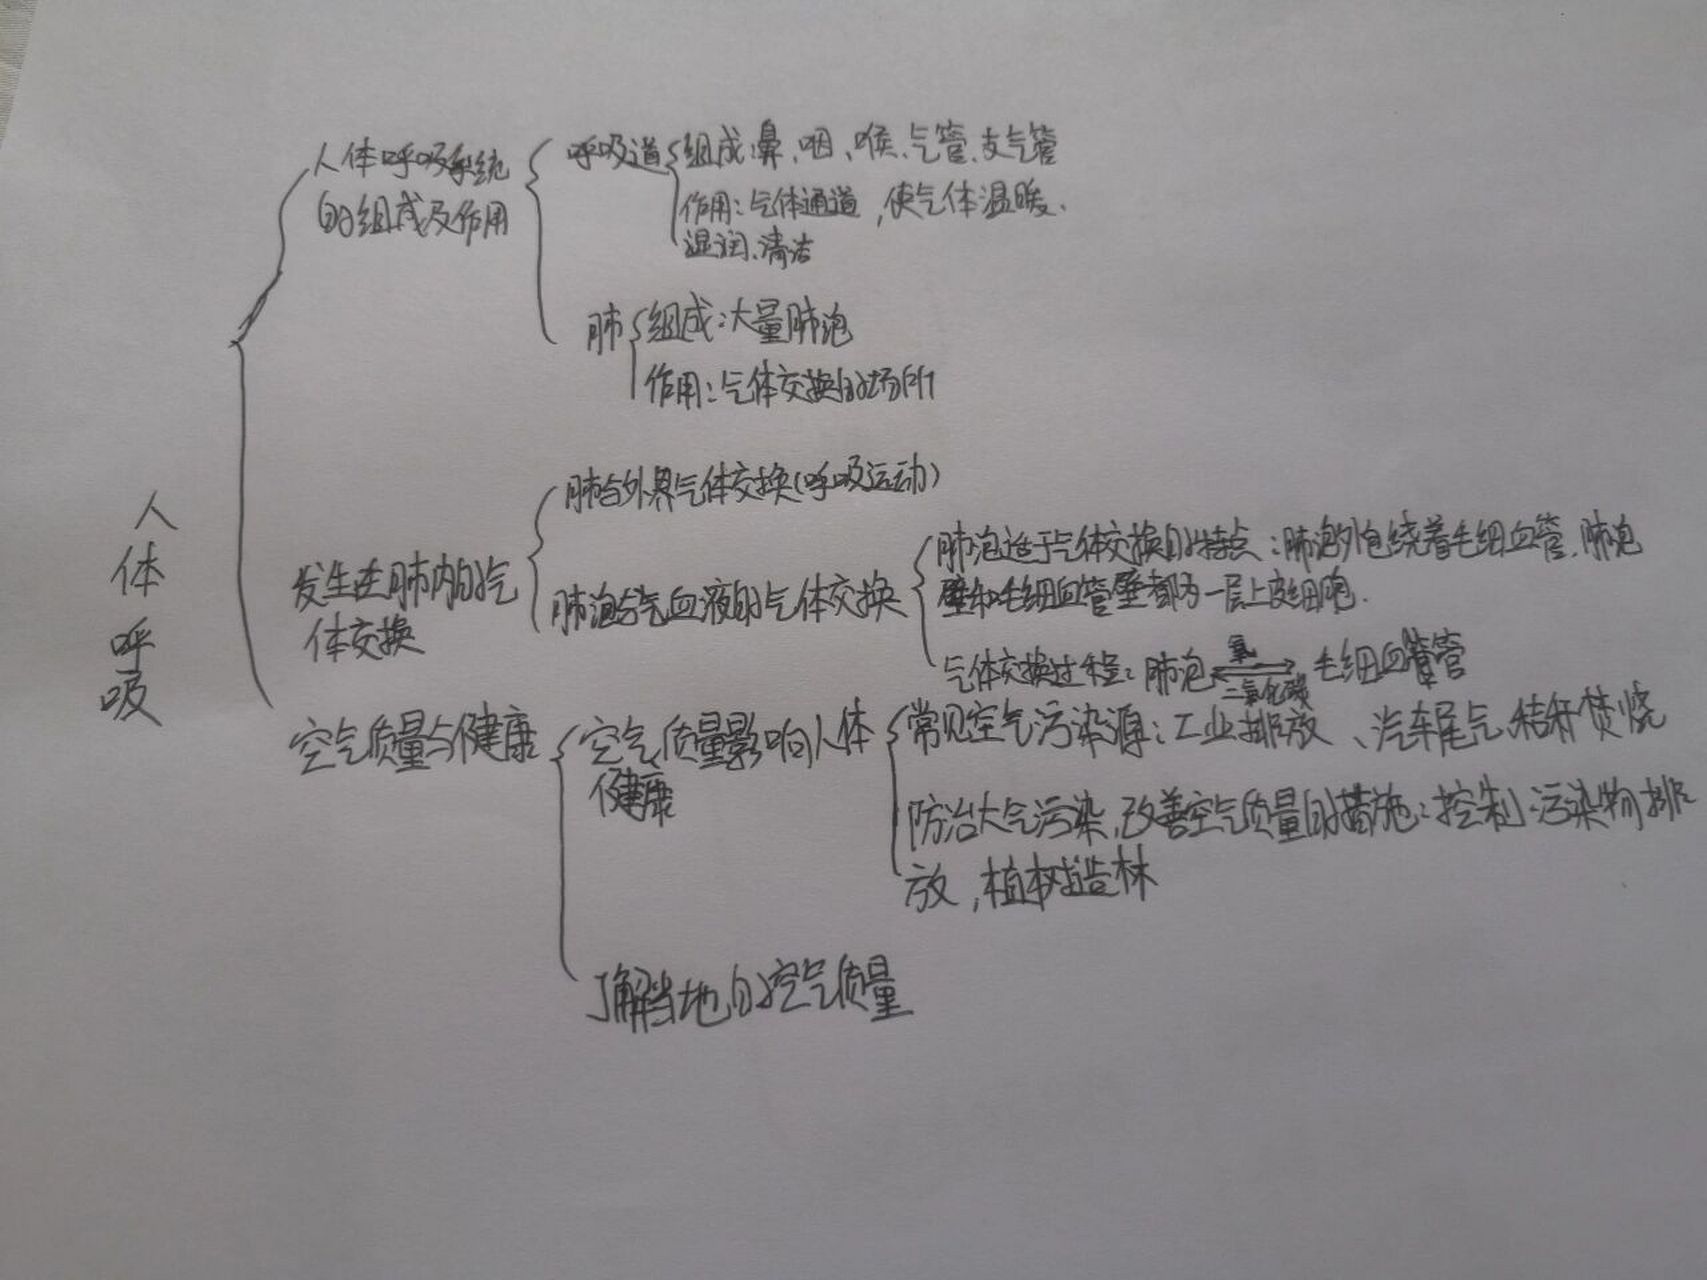 人体呼吸系统
的组成及作用
呼吸道
组成:鼻、咽、喉、气管、支气管
作用:气体通道,使气体温暖、
湿润、清洁
肺
组成:大量肺泡
作用:气体交换的场所
人体呼吸
发生在肺内的气
体交换
肺与外界气体交换(呼吸运动)
肺泡与血液的气体交换
肺泡适于气体交换的特点:肺泡外包绕着毛细血管,肺泡
壁和毛细血管壁都为一层上皮细胞.
气体交换过程:肺泡 氧 二氧化碳 毛细血管
空气质量与健康
空气质量影响人体
健康
常见空气污染源:工业排放、汽车尾气、秸秆焚烧
防治大气污染,改善空气质量的措施:控制污染物排
放,植树造林
了解当地的空气质量